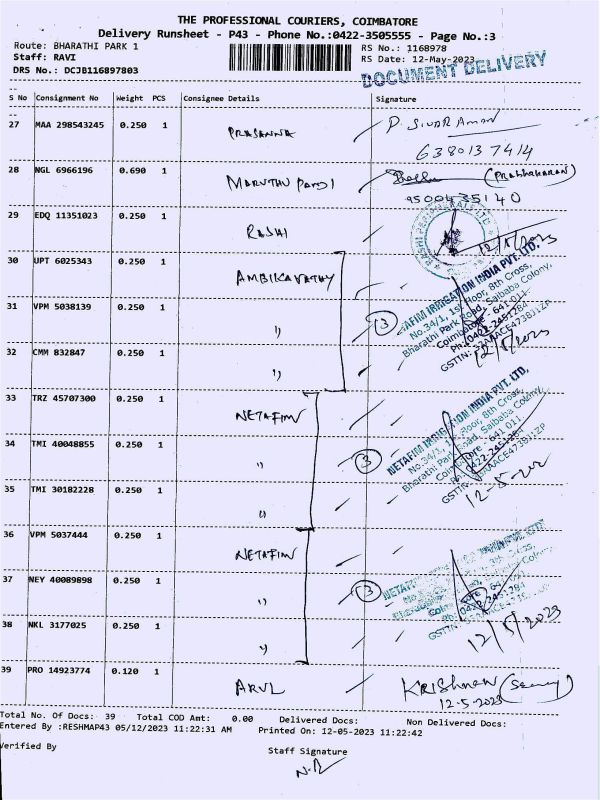 THE PROFESSIONAL COURIERS, COIMBATORE
Delivery Runsheet - P43 - Phone No.:0422-3505555 - Page No.:3
Route: BHARATHI PARK 1 RS No.: 1168978
Staff: RAVI RS Date: 12-May-2023
DRS No.: DCJB116897803
DOCUMENT DELIVERY
S No Consignment No Weight PCS Consignee Details Signature
27 MAA 298543245 0.250 1 PRASANNA P. SIVARAMAN
6380137414
28 NGL 6966196 0.690 1 MARUTHU PANDI (PRABHAKARAN)
9500435140
29 EDQ 11351023 0.250 1 RASHI 12/5/2023
30 UPT 6025343 0.250 1 AMBIKAVATHY
31 VPM 5038139 0.250 1 " 3
AFIM IRRIGATION INDIA PVT. LTD.
No.34/1, 1st Floor, 8th Cross,
Bharathi Park Road, Saibaba Colony,
Coimbatore - 641 011.
GSTIN:
12/5/2023
32 CMM 832847 0.250 1 "
33 TRZ 45707300 0.250 1 NETAFIM
34 TMI 40048855 0.250 1 " 3
NETAFIM IRRIGATION INDIA PVT. LTD.
No.34/1, 1st Floor, 8th Cross,
Bharathi Park Road, Saibaba Colony,
641 011.
GSTIN
12-5-202
35 TMI 30182228 0.250 1 "
36 VPM 5037444 0.250 1 NETAFIM
37 NEY 40089898 0.250 1 " 3
NETAFIM
GSTIN
12/5/2023
38 NKL 3177025 0.250 1 "
39 PRO 14923774 0.120 1 ARUL KRISHNAN
12-5-2023
Total No. Of Docs: 39 Total COD Amt: 0.00 Delivered Docs: Non Delivered Docs:
Entered By :RESHMAP43 05/12/2023 11:22:31 AM Printed On: 12-05-2023 11:22:42
Verified By Staff Signature